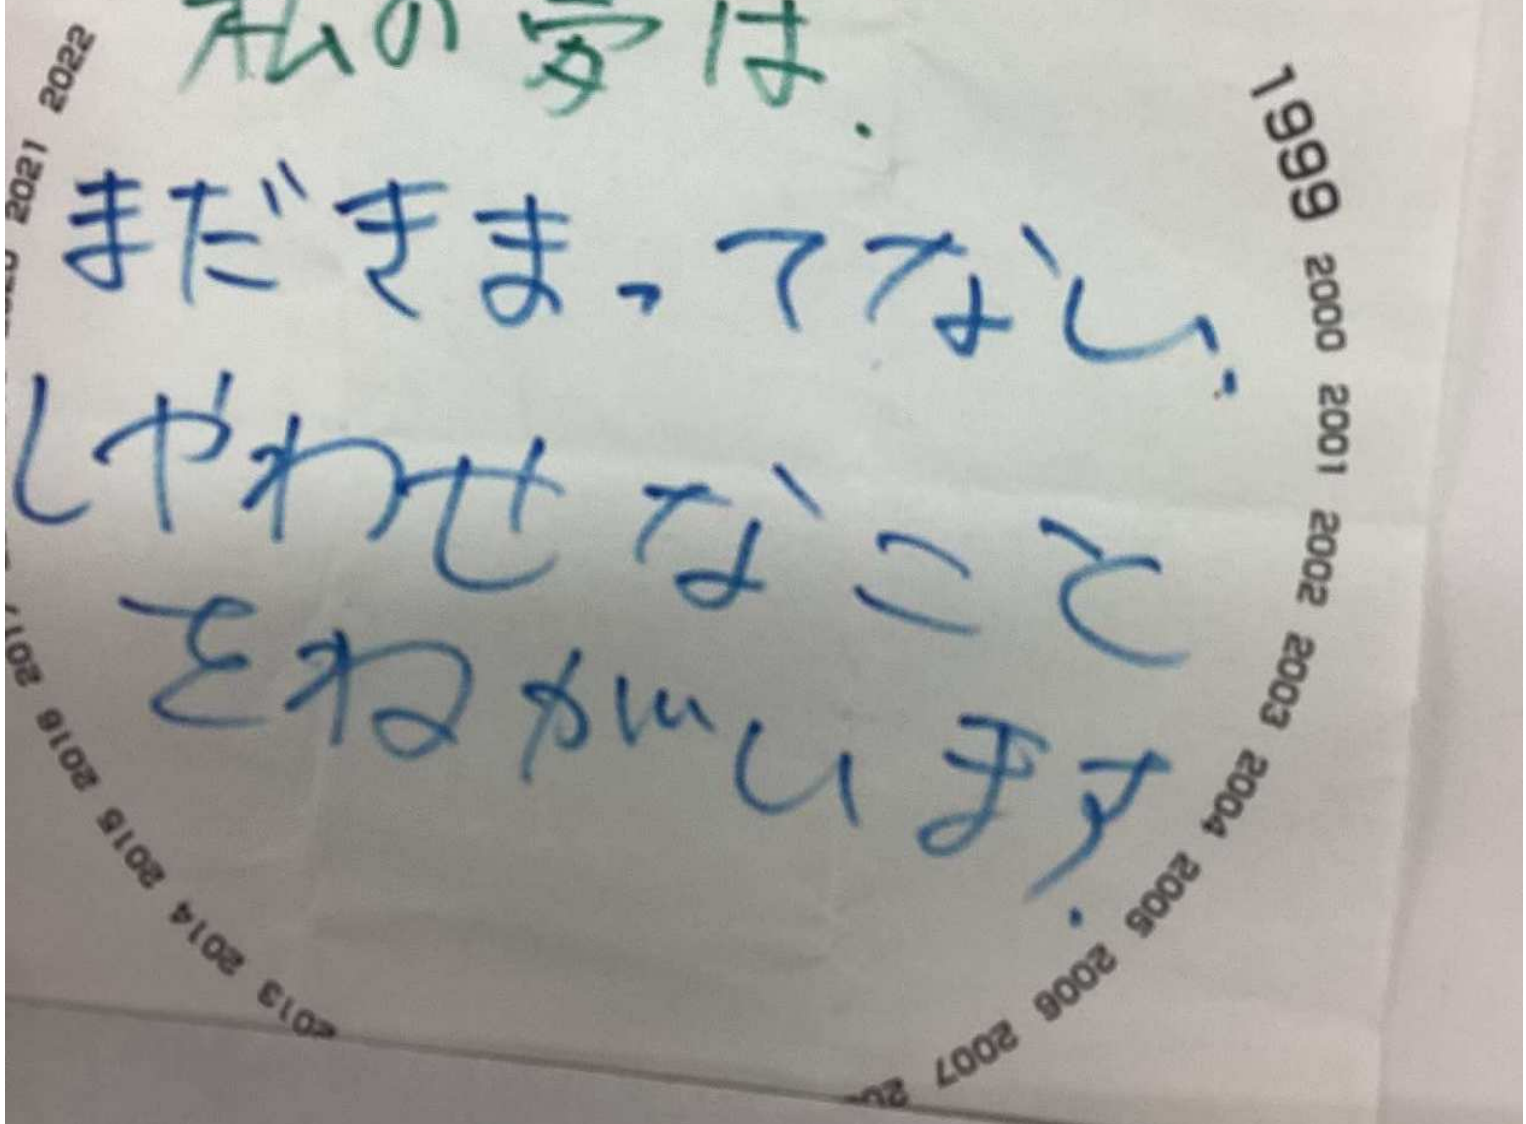 私の夢は.
まだきまってない.
しやわせなこと
をねがいます.
1999 2000 2001 2002 2003 2004 2005 2006 2007
2013 2014 2015 2016 2017
2021 2022